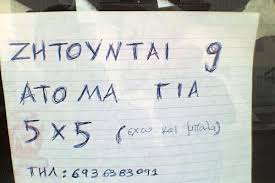 ΖΗΤΟΥΝΤΑΙ 9
ΑΤΟΜΑ ΓΙΑ
5×5 (έχω και μπάλα)
ΤΗΛ: 6936383091